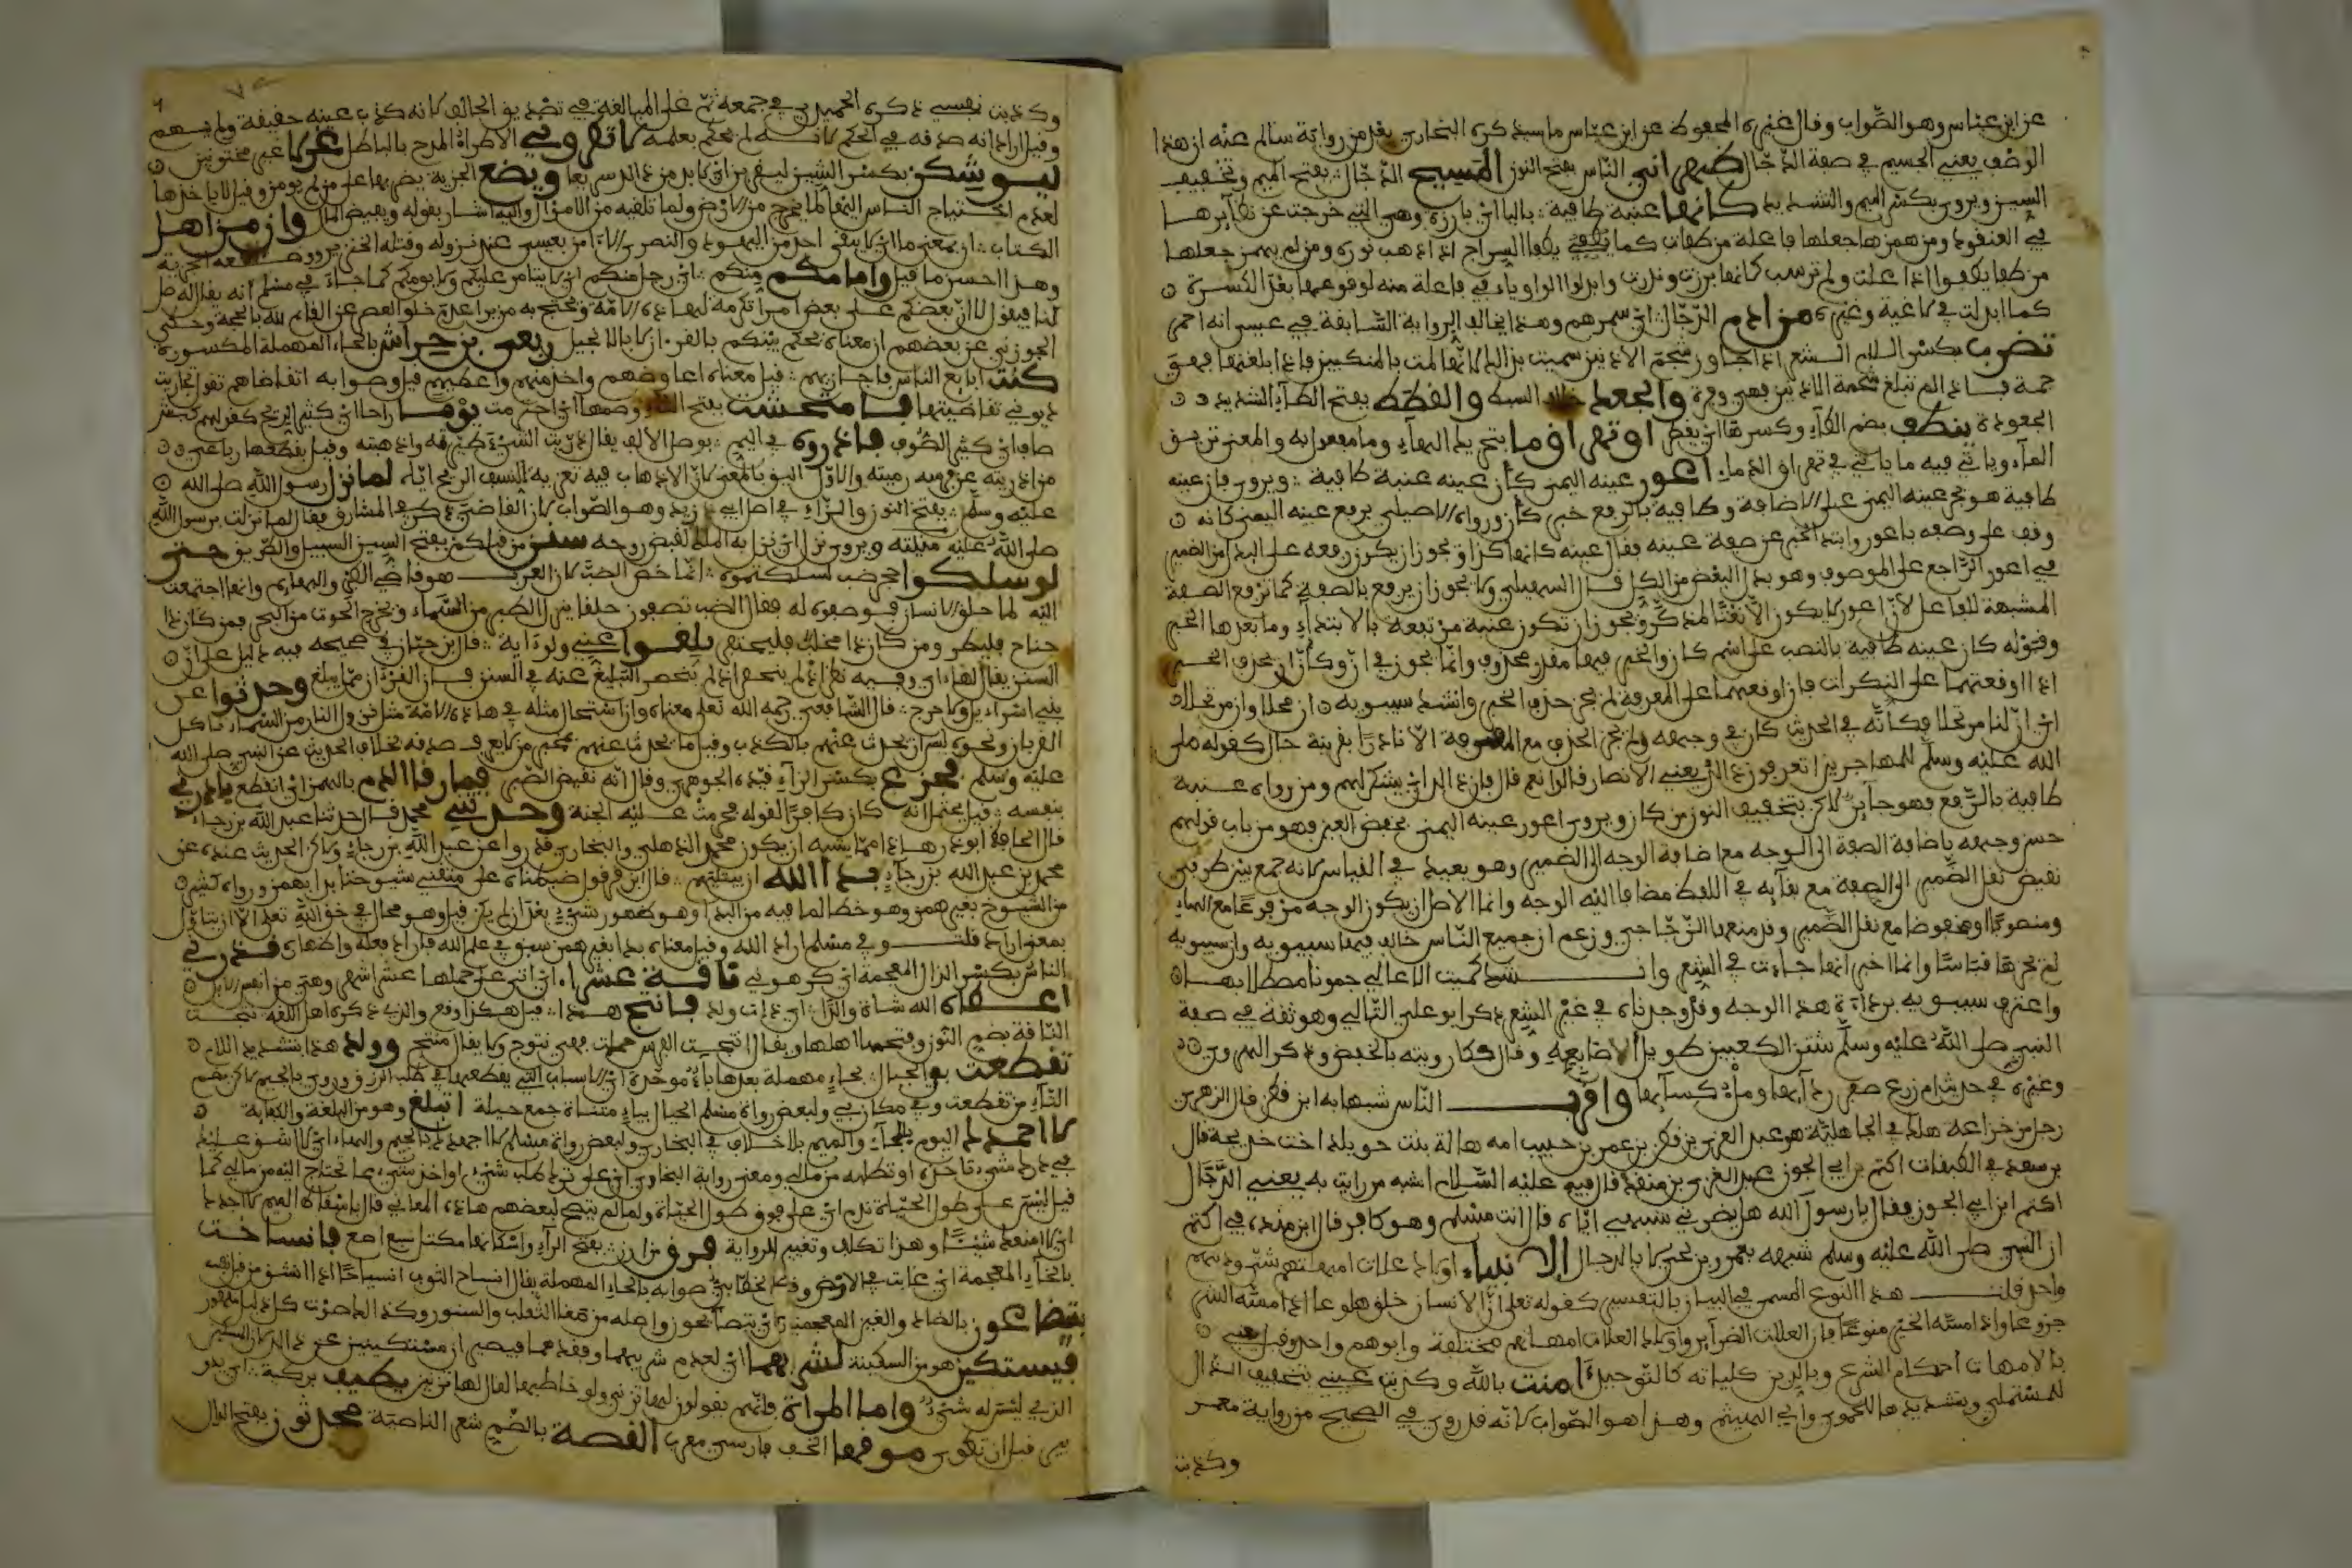 عن ابن عباس وهو الصواب وقال غيره المحفوظ عن ابن عباس ما سيذكره البخاري بعد من رواية سالم عنه ان هذا
الوصف يعني الجسيم في صفة الدجال ظهراني الناس بفتح النون المسيح الدجال بفتح الميم وتخفيف
السين ويروى بكسر الميم والتشديد كانها عنبة طافية بالياء اي بارزة وهي التي خرجت عن نظايرها
في العنقود ومن همزها جعلها فاعلة من طفئت كما يطفى السراج اذا ذهب نوره ومن لم يهمز جعلها
من طفا يطفوا اذا علت ولم ترسب كانها برزت وندرت وابدلوا الواو ياء في فاعلة منه لوقوعها بعد الكسرة
كما ابدلت في داعية وغيره من ادم الرجال اي سمرهم وهذا يخالف الرواية السابقة في عيسى انه احمر
تضرب بكسر اللام الشعر اذا جاوز شحم الاذنين سميت بذلك لانها المت بالمنكبين فاذا بلغتها فهي
جمة فاذا لم تبلغ شحمة الاذنين فهي وفرة والجعد خلاف السبط والقطط بفتح الطاء الشديد
الجعودة ينطف بضم الطاء وكسرها اي يقطر او تهراق وما بتحريك الهاء وما مفعول به والمعنى تريق
الماء وياتي فيه ما ياتي في تهراق الدماء اعور عينه اليمنى كأن عينه عنبة طافية ويروى فان عينه
طافية هو بجر عينه اليمنى على الاضافة وطافية بالرفع خبر كأن ورواه الاصيلي برفع عينه اليمنى كانه
وقف على وصفه باعور وابتدا الخبر عن صفة عينه فقال عينه كانها كذا ويجوز ان يكون رفعه على البدل من الضمير
في اعور الراجع على الموصوف وهو بدل البعض من الكل قال السهيلي ولا يجوز ان يرفع بالصفة كما ترفع الصفة
المشبهة للفاعل لان اعور لا يكون الا نعتا لمذكر ويجوز ان تكون عنبة مرتبعة بالابتداء وما بعدها الخبر
وقوله كان عينه طافية بالنصب على اسم كان والخبر فيها مقدر محذوف وانما يجوز في ان وكأن ان يحذف الخبر
اذا اوقعتهما على النكرات فان اوقعتهما على المعرفة لم يجز حذف الخبر وانشد سيبويه ان محلا وان مرتحلا
اي ان لنا مرتحلا فكأنه في الحديث كان في وجهه ولم يجز الحذف مع المعرفة الا نادرا بقرينة حال كقوله صلى
الله عليه وسلم للمهاجرين اتعرفون ذلك يعني الانصار قالوا نعم قال فان ذلك اي يشكر لهم ومن رواه عنبة
طافية بالرفع فهو جايز لاكن بتخفيف النون من كان ويروى اعور عينه اليمنى بخفض العين وهو من باب قولهم
حسن وجهه باضافة الصفة الى الوجه مع اضافة الوجه الى الضمير وهو بعيد في القياس لانه جمع بين طرفي
نقيض نقل الضمير الى الصفة مع بقائه في اللفظ مضافا اليه الوجه وانما الاصل ان يكون الوجه مرفوعا مع الهاء
ومنصوبا او مخفوضا مع نقل الضمير وقد منعها الزجاجي وزعم ان جميع الناس خالف فيها سيبويه وان سيبويه
لم يجزها قياسا وانما اخبر انها جاءت في الشعر وانشد كميت الاعالي جونتا مصطلاهما
واعترف سيبويه برداءة هذا الوجه وقد وجدناه في غير الشعر ذكر ابو علي القالي وهو ثقة في صفة
النبي صلى الله عليه وسلم شثن الكعبين طويل الاصابعه وقال هكذا رويته بالخفض وذكر الهروي
وغيره في حديث ام زرع صفر ردآيها وملء كسآيها واقرب الناس شبها به ابن قطن قال الزهري
رجل من خزاعة هلك في الجاهلية هو عبد العزى بن قطن بن عمرو بن حبيب امه هالة بنت خويلد اخت خديجة قال
بن سعد في الطبقات اكثم بن ابي الجون عبد العزى بن منقذ قال فيه عليه السلام اشبه من رايت به يعني الدجال
اكثم ابن ابي الجون فقال يا رسول الله هل يضرني شبهي اياه قال انت مسلم وهو كافر قال ابن منده في اكثم
ان النبي صلى الله عليه وسلم شبهه بعمرو بن لحي لا بالدجال الانبياء اولاد علات امهاتهم شتى ودينهم
واحد قلت هذا النوع المسمى في البيان بالتفسير كقوله تعلى ان الانسان خلق هلوعا اذا مسه الشر
جزوعا واذا مسه الخير منوعا فان العلات الضرآير واولاد العلات امهاتهم مختلفة وابوهم واحد وقيل يعني
بالامهات احكام الشرع وبالدين كلياته كالتوحيد آمنت بالله وكذبت عيني بتخفيف الذال
للمستملي وبتشديدها للحموي وابي الهيثم وهذا هو الصواب لانه قد روي في الصحيح من رواية معمر
وكذبت
وكذبت نفسي ذكره الحميدي في جمعه ثم على المبالغة في تصديق الحالف لا انه كذب عينه حقيقة ولم يتهم
وقيل اراد انه صدقه في الحكم لانه لم يحكم بعلمه لا تطروني الاطراء المدح بالباطل غرلا غير مختونين
ليوشكن بكسر الشين ليقربن اي لا بد من ذلك سريعا ويضع الجزية يضربها على من لم يومن وقيل لا ياخذها
لعدم احتياج الناس اليها لما يخرج من الارض ولما تلقيه من الاموال واليه اشار بقوله ويفيض المال وان من اهل
الكتاب ان بمعنى ما اي لا يبقى احد من اليهود والنصرى الا امن بعيسى عند نزوله وقتله الخنزير ووضعه الجزية
وهذا احسن ما قيل وامامكم منكم اي رجل منكم اي لا يتامر عليكم ولا يومكم كما جاء في مسلم انه يقال له صل
لنا فيقول لا ان بعضكم على بعض امرا تكرمة لهاذه الامة ويحتج به من يرا عدم خلو العصر عن القايم لله بالحجة وحكى
الجوزني عن بعضهم ان معناه يحكم بينكم بالقرءان لا بالانجيل ربعي بن حراش بالحاء المهملة المكسورة
كنت ابايع الناس فاجازيهم قيل معناه اعاوضهم واخذ منهم واعطيهم قيل وصوابه اتقاضاهم تقول تجازيت
ديوني تقاضيتها فامتحشت بفتح التاء وضمها اي احترقت يوما راحا اي كثير الريح كقولهم كبش
صاف اي كثير الصوف فاذروه في اليم بوصل الالف يقال ذريت الشيء فرقه واذهبته وقيل بقطعها رباعي
من اذريته عن فرسه رميته والاول اليق بالمعنى لان الاذهاب فيه تعريه لنسف الريح اياه لما نزل رسول الله صلى الله
عليه وسلم بفتح النون والزاء في اصل ابي زيد وهو الصواب كان القاضي ذكره في المشارق فقال لما نزلت برسول الله
صلى الله عليه منيته ويروى نزل اي نزل به الملك لقبض روحه سنن من قبلكم بفتح السين السبيل والطريق حتى
لو سلكوا جحر ضب لسلكتموه انما خص الضب لان العرب هو قاضي الطير والبهايم وانها اجتمعت
اليه لما خلق الانسان فوصفوه له فقال الضب تصفون خلقا ينزل الطير من السماء ويخرج الحوت من البحر فمن كان ذا
جناح فليطر ومن كان ذا مخلب فليحتفر بلغوا عني ولو ءاية قال ابن حبان في صحيحه فيه دليل على ان
السنن يقال لها ءاي وفيه نظر اذ لم ينحصر التبليغ عنه في السنن فان القرءان مما يبلغ وحدثوا عن
بني اسراءيل ولا حرج قال الشافعي رحمه الله تعلى معناه وان استحال مثله في هاذه الامة مثل نزول النار من السماء تاكل
القربان ونحوه ليس ان يحدث عنهم بالكذب وقيل ما يحدث عنهم بخبر من لا يعرف صدقه بخلاف الحديث عن النبي صلى الله
عليه وسلم فجزع بكسر الزاء قيده الجوهري وقال انه نقيض الصبر فما رقا الدم بالهمز اي انقطع بادرني
بنفسه قيل يحتمل انه كان كافرا لقوله حرمت عليه الجنة وحدثني محمد قال حدثنا عبد الله بن رجاء
قال الحافظ ابو ذر هذا مما يشبه ان يكون محمد الذهلي والبخاري قد روا عن عبد الله بن رجاء ولاكن الحديث عنده عن
محمد بن عبد الله بن رجاء بدا الله ان يبتليهم قال ابن قرقول ضبطناه على متقني شيوخنا بدا بهمز ورواه كثير
من الشيوخ بغير همز وهو خطا لما فيه من البدا وهو ظهور شيء بعد ان لم يكن قبل وهو محال في حق الله تعلى الا ان يتاول
بمعنى اراد قلت وفي مسلم اراد الله وقيل معناه بدا بغير همز سبق في علم الله فاراد فعله واظهاره قذرني
الناس بكسر الذال المعجمة اي كرهوني ناقة عشراء اي اتى على حملها عشر اشهر وهي من انفس الابل
اعطاه الله شاة والدا اي ذات ولد فانتج هذا قيل هكذا وقع والذي ذكره اهل اللغة نتجت
الناقة بضم النون ونتجها اهلها ويقال انتجت الفرس حملت فهي نتوج ولا يقال منتج وولد هذا بتشديد اللام
تقطعت بي الحبال بحاء مهملة بعدها باء موحدة اي الاسباب التي يقطعها في طلب الرزق وروي بالجيم
التاء من تقطعت وفي مكان بي ولبعض رواة مسلم الحيل بياء مثناة جمع حيلة اتبلغ وهو من البلغة والكفاية
لا احمدك اليوم بالحاء والميم بلا خلاف في البخاري ولبعض رواة مسلم لا اجهدك بالجيم والهاء اي لا اشق عليك
في رد شيء تاخذه او تطلبه من مالي ومعنى رواية البخاري اي على ترك طلب شيء او اخذ شيء مما تحتاج اليه من مالي كما
قيل ليس على طول الحياة ندم اي على فوت طول الحياة ولما لم يتضح لبعضهم هاذه المعاني قال باسقاط الميم لا احدك
اي لا امنعك شيئا وهذا تكلف وتغيير للرواية فرق من ارز بفتح الراء واسكانها مكتل يسع اصع فانساخت
بالخاء المعجمة اي غابت في الارض وقال الخطابي صوابه بالحاء المهملة يقال انساح الثوب انسياحا اذا انشق من قبل نفسه
يتضاغون بالضاد والغين المعجمة اي يتصايحون واصله من ضغا الثعلب والسنور وكذلك صوت كل ذليل مقهور
فيستكن هو من السكينة لشربهما اي لعدم شربهما وفقدهما فيصيران مستكينين
الذي ليس له شيء واما المراة فانهم يقولون لها تزني ولو خاطبها لقال لها تزنين يطيف بركية اي يدور
موقها الخف فارسي معرب القصة بالضم شعر الناصية محدثون بفتح الدال